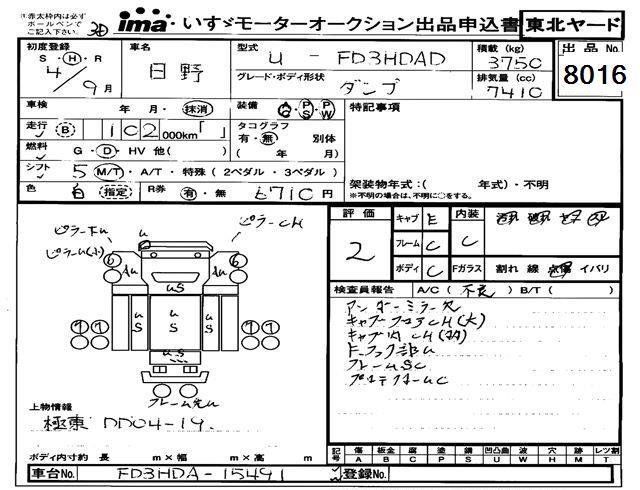 ※赤太枠内は必ず
ボールペンで
ご記入下さい。
ima いすゞモーターオークション出品申込書 東北ヤード
初度登録 S・H・R 4年 9月
車名 日野
型式 U - FD3HDAD
グレード・ボディ形状 ダンプ
積載 (kg) 3750
排気量 (cc) 7410
出品 No. 8016
車検 年 月・抹消
装備 AC・PS・PW
特記事項
走行 B 102,000km「 」
タコグラフ 有・無 別体 ( 年 月)
燃料 G・D・HV 他( )
シフト 5 M/T・A/T・特殊 (2ペダル・3ペダル)
色 白 指定 R券 有・無 6710円
架装物年式:( 年式)・不明
※不明の場合は、不明に○をする。
評価 2
キャブ E
フレーム C
ボディ C
内装 C
Fガラス 割れ 線 点傷 イバリ
検査員報告 A/C( 不良 ) B/T( )
アンダーミラー欠
キャブフロアCH(大)
キャブ内CH(多)
フレームSC
ピラー下U
ピラーCH
ピラーU(小)
U
6
6
AU
AU
US
U
S
U
S
U
S
US
7 7
7 7
フレーム先U
上物情報
極東 DD04-19.
ボディ内寸約 長 m×幅 m×高 m
記号 傷A 板金B 腐C 塗P 錆S 凹凸曲U 波W 穴H 跡M レツ割T
車台No. FD3HDA-15491
登録No.